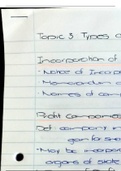 Topic 3 Types o
Incorporation of
• Notice of Incorp
Memorandum o
Names of comp
Profit companies
Def company
gain for sha
• May be incorpor
organs of state